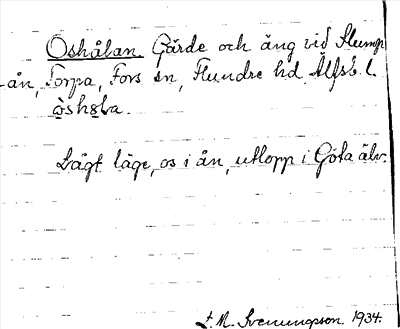 Oshålan. Gärde och äng vid Slump-
ån, Torpa, Fors sn, Flundre hd Älfsb. l.
òshɵ̀la.
Lågt läge, os i ån, utlopp i Göta älv.
S. M. Svenungsson. 1934.